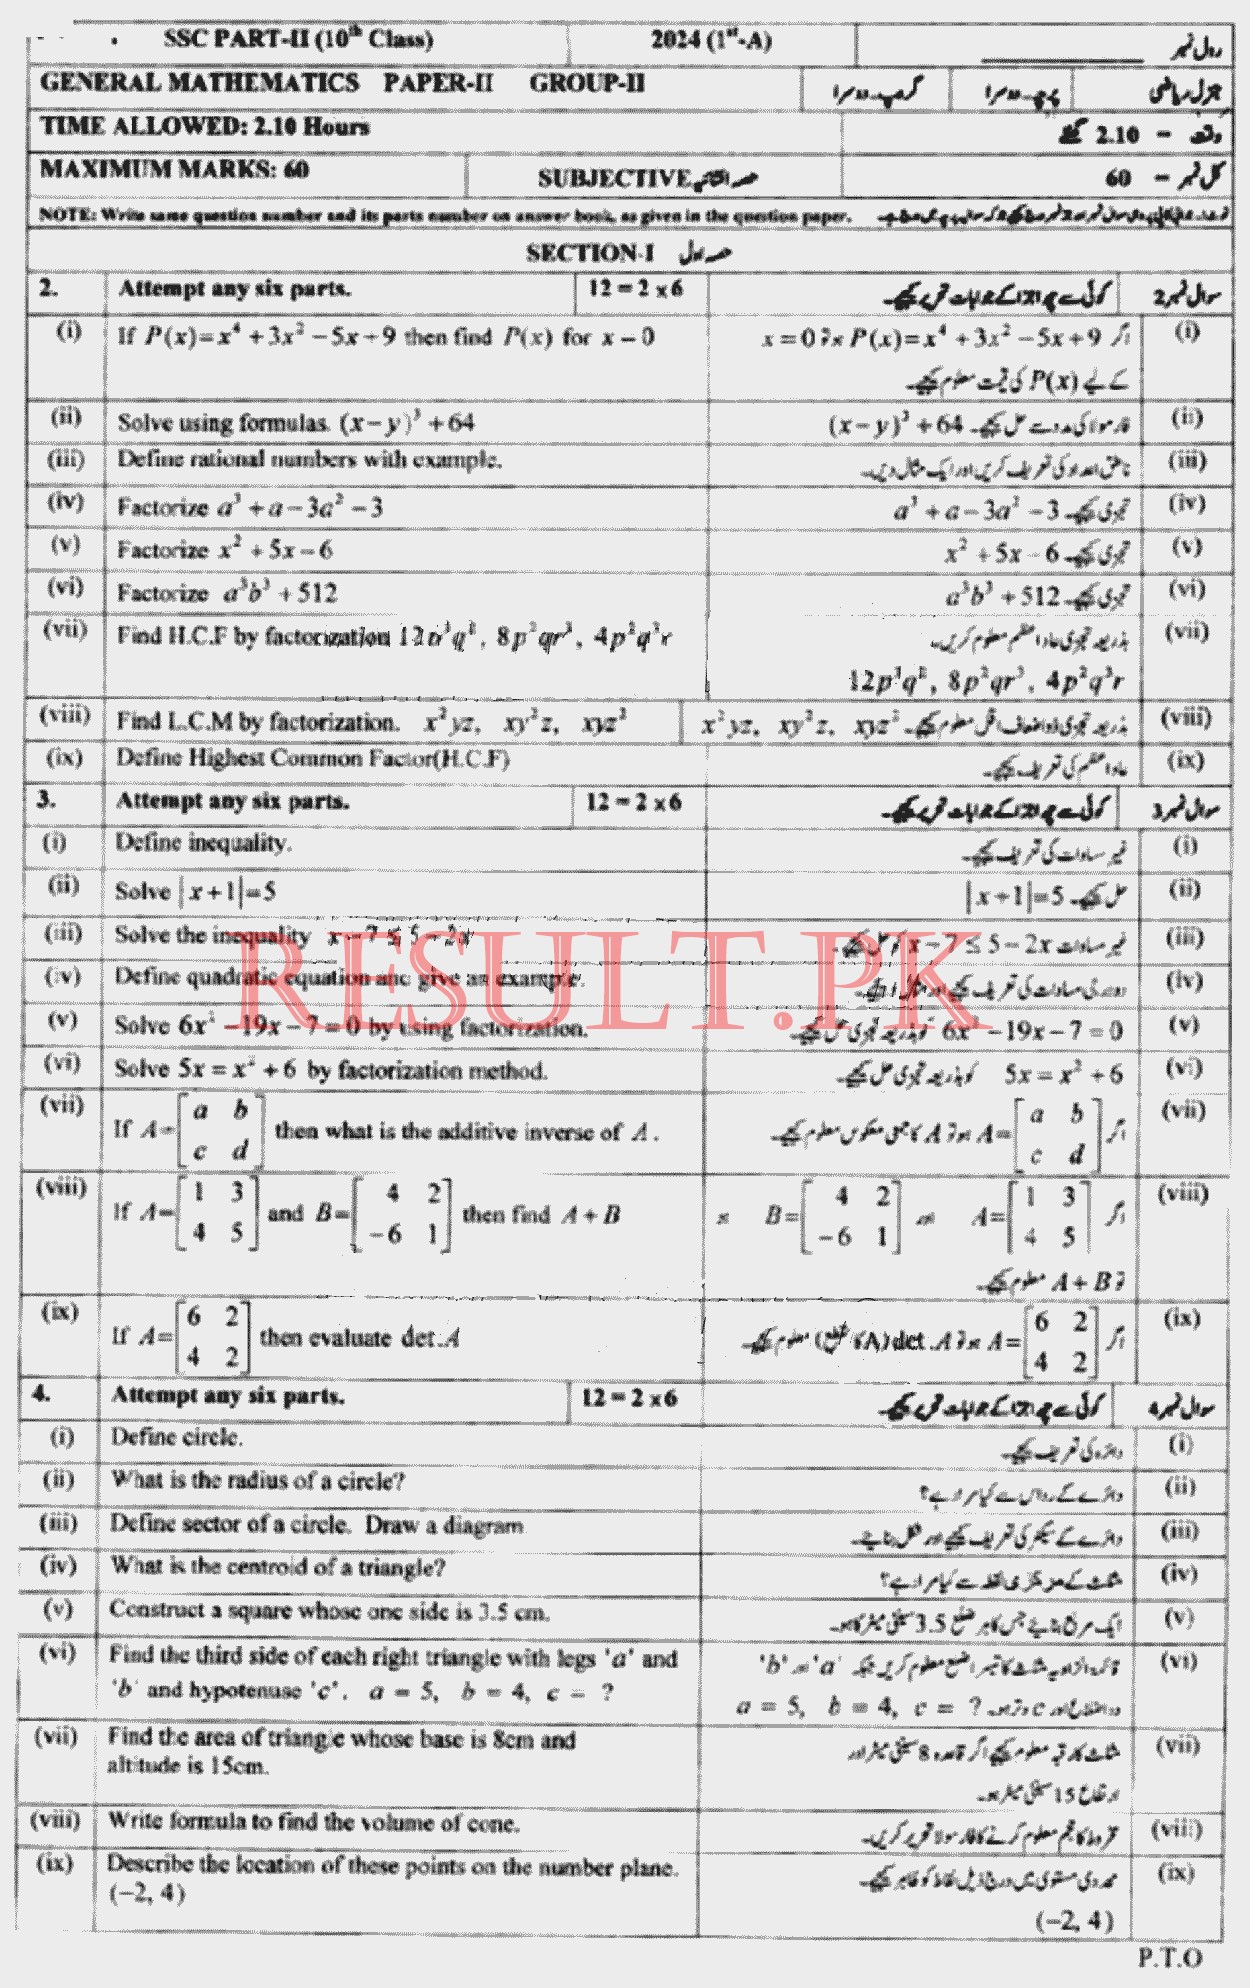 SSC PART-II (10th Class) 2024 (1st-A) رول نمبر
GENERAL MATHEMATICS PAPER-II GROUP-II گروپ۔دوسرا پرچہ۔دوسرا جنرل ریاضی
TIME ALLOWED: 2.10 Hours وقت – 2.10 گھنٹے
MAXIMUM MARKS: 60 SUBJECTIVE حصہ انشائیہ کل نمبر – 60
NOTE: Write same question number and its parts number on answer book, as given in the question paper.
SECTION-I حصہ اول
2. Attempt any six parts. 12 = 2 x 6 کوئی سے چھ کے جوابات تحریر کیجئے۔ سوال نمبر 2
(i) If P(x)=x⁴ +3x² −5x+9 then find P(x) for x = 0 اگر P(x)=x⁴ +3x² −5x+9 ہو تو x = 0 (i)
کے لیے P(x) کی قیمت معلوم کیجئے۔
(ii) Solve using formulas. (x−y)³ +64 فارمولا کی مدد سے حل کیجئے۔ (x−y)³ +64 (ii)
(iii) Define rational numbers with example. ناطق اعداد کی تعریف کریں اور ایک مثال دیں۔ (iii)
(iv) Factorize a³ +a−3a² −3 تجزی کیجئے۔ a³ +a−3a² −3 (iv)
(v) Factorize x² +5x−6 تجزی کیجئے۔ x² +5x−6 (v)
(vi) Factorize a³b³ +512 تجزی کیجئے۔ a³b³ +512 (vi)
(vii) Find H.C.F by factorization بذریعہ تجزی عاد اعظم معلوم کریں۔ (vii)
8p²qr³, 4p²q³r
(viii) Find L.C.M by factorization. x²yz, xy²z, xyz² بذریعہ تجزی ذواضعاف اقل معلوم کیجئے۔ x²yz, xy²z, xyz² (viii)
(ix) Define Highest Common Factor(H.C.F) عاد اعظم کی تعریف کیجئے۔ (ix)
3. Attempt any six parts. 12 = 2 x 6 کوئی سے چھ کے جوابات تحریر کیجئے۔ سوال نمبر 3
(i) Define inequality. غیر مساوات کی تعریف کیجئے۔ (i)
(ii) Solve |x+1|=5 حل کیجئے۔ |x+1|=5 (ii)
(iii) Solve the inequality x−7 ≤ 5−2x غیر مساوات x−7 ≤ 5−2x کو حل کیجئے۔ (iii)
(iv) Define quadratic equation and give an example. دو درجی مساوات کی تعریف کیجئے اور مثال دیجئے۔ (iv)
(v) Solve 6x² −19x−7=0 by using factorization. 6x² −19x−7=0 کو بذریعہ تجزی حل کیجئے۔ (v)
(vi) Solve 5x = x² +6 by factorization method. 5x = x² +6 کو بذریعہ تجزی حل کیجئے۔ (vi)
(vii) If A=[a b; c d] then what is the additive inverse of A. اگر A=[a b; c d] ہو تو A کا جمعی معکوس معلوم کیجئے۔ (vii)
(viii) If A=[1 3; 4 5] and B=[4 2; −6 1] then find A+B اگر A=[1 3; 4 5] اور B=[4 2; −6 1] ہو (viii)
تو A+B معلوم کیجئے۔
(ix) If A=[6 2; 4 2] then evaluate det.A اگر A=[6 2; 4 2] ہو تو det.A (A کا مقطع) معلوم کیجئے۔ (ix)
RESULT.PK
4. Attempt any six parts. 12 = 2 x 6 کوئی سے چھ کے جوابات تحریر کیجئے۔ سوال نمبر 4
(i) Define circle. دائرہ کی تعریف کیجئے۔ (i)
(ii) What is the radius of a circle? دائرے کے رداس سے کیا مراد ہے؟ (ii)
(iii) Define sector of a circle. Draw a diagram دائرے کے سیکٹر کی تعریف کیجئے اور شکل بنائیے۔ (iii)
(iv) What is the centroid of a triangle? مثلث کے مرکزی نقطہ سے کیا مراد ہے؟ (iv)
(v) Construct a square whose one side is 3.5 cm. ایک مربع بنائیے جس کا ہر ضلع 3.5 سینٹی میٹر کا ہو۔ (v)
(vi) Find the third side of each right triangle with legs 'a' and قائمۃ الزاویہ مثلث کا تیسرا ضلع معلوم کریں جبکہ 'a' اور 'b' (vi)
'b' and hypotenuse 'c'. a = 5, b = 4, c = ? دو اضلاع اور c وتر ہو۔ a = 5, b = 4, c = ?
(vii) Find the area of triangle whose base is 8cm and مثلث کا رقبہ معلوم کیجئے اگر قاعدہ 8 سینٹی میٹر اور (vii)
altitude is 15cm. ارتفاع 15 سینٹی میٹر ہو۔
(viii) Write formula to find the volume of cone. مخروط کا حجم معلوم کرنے کا فارمولا تحریر کریں۔ (viii)
(ix) Describe the location of these points on the number plane. عددی مستوی میں درج ذیل نقاط کو ظاہر کیجئے۔ (ix)
(−2, 4) (−2, 4)
P.T.O